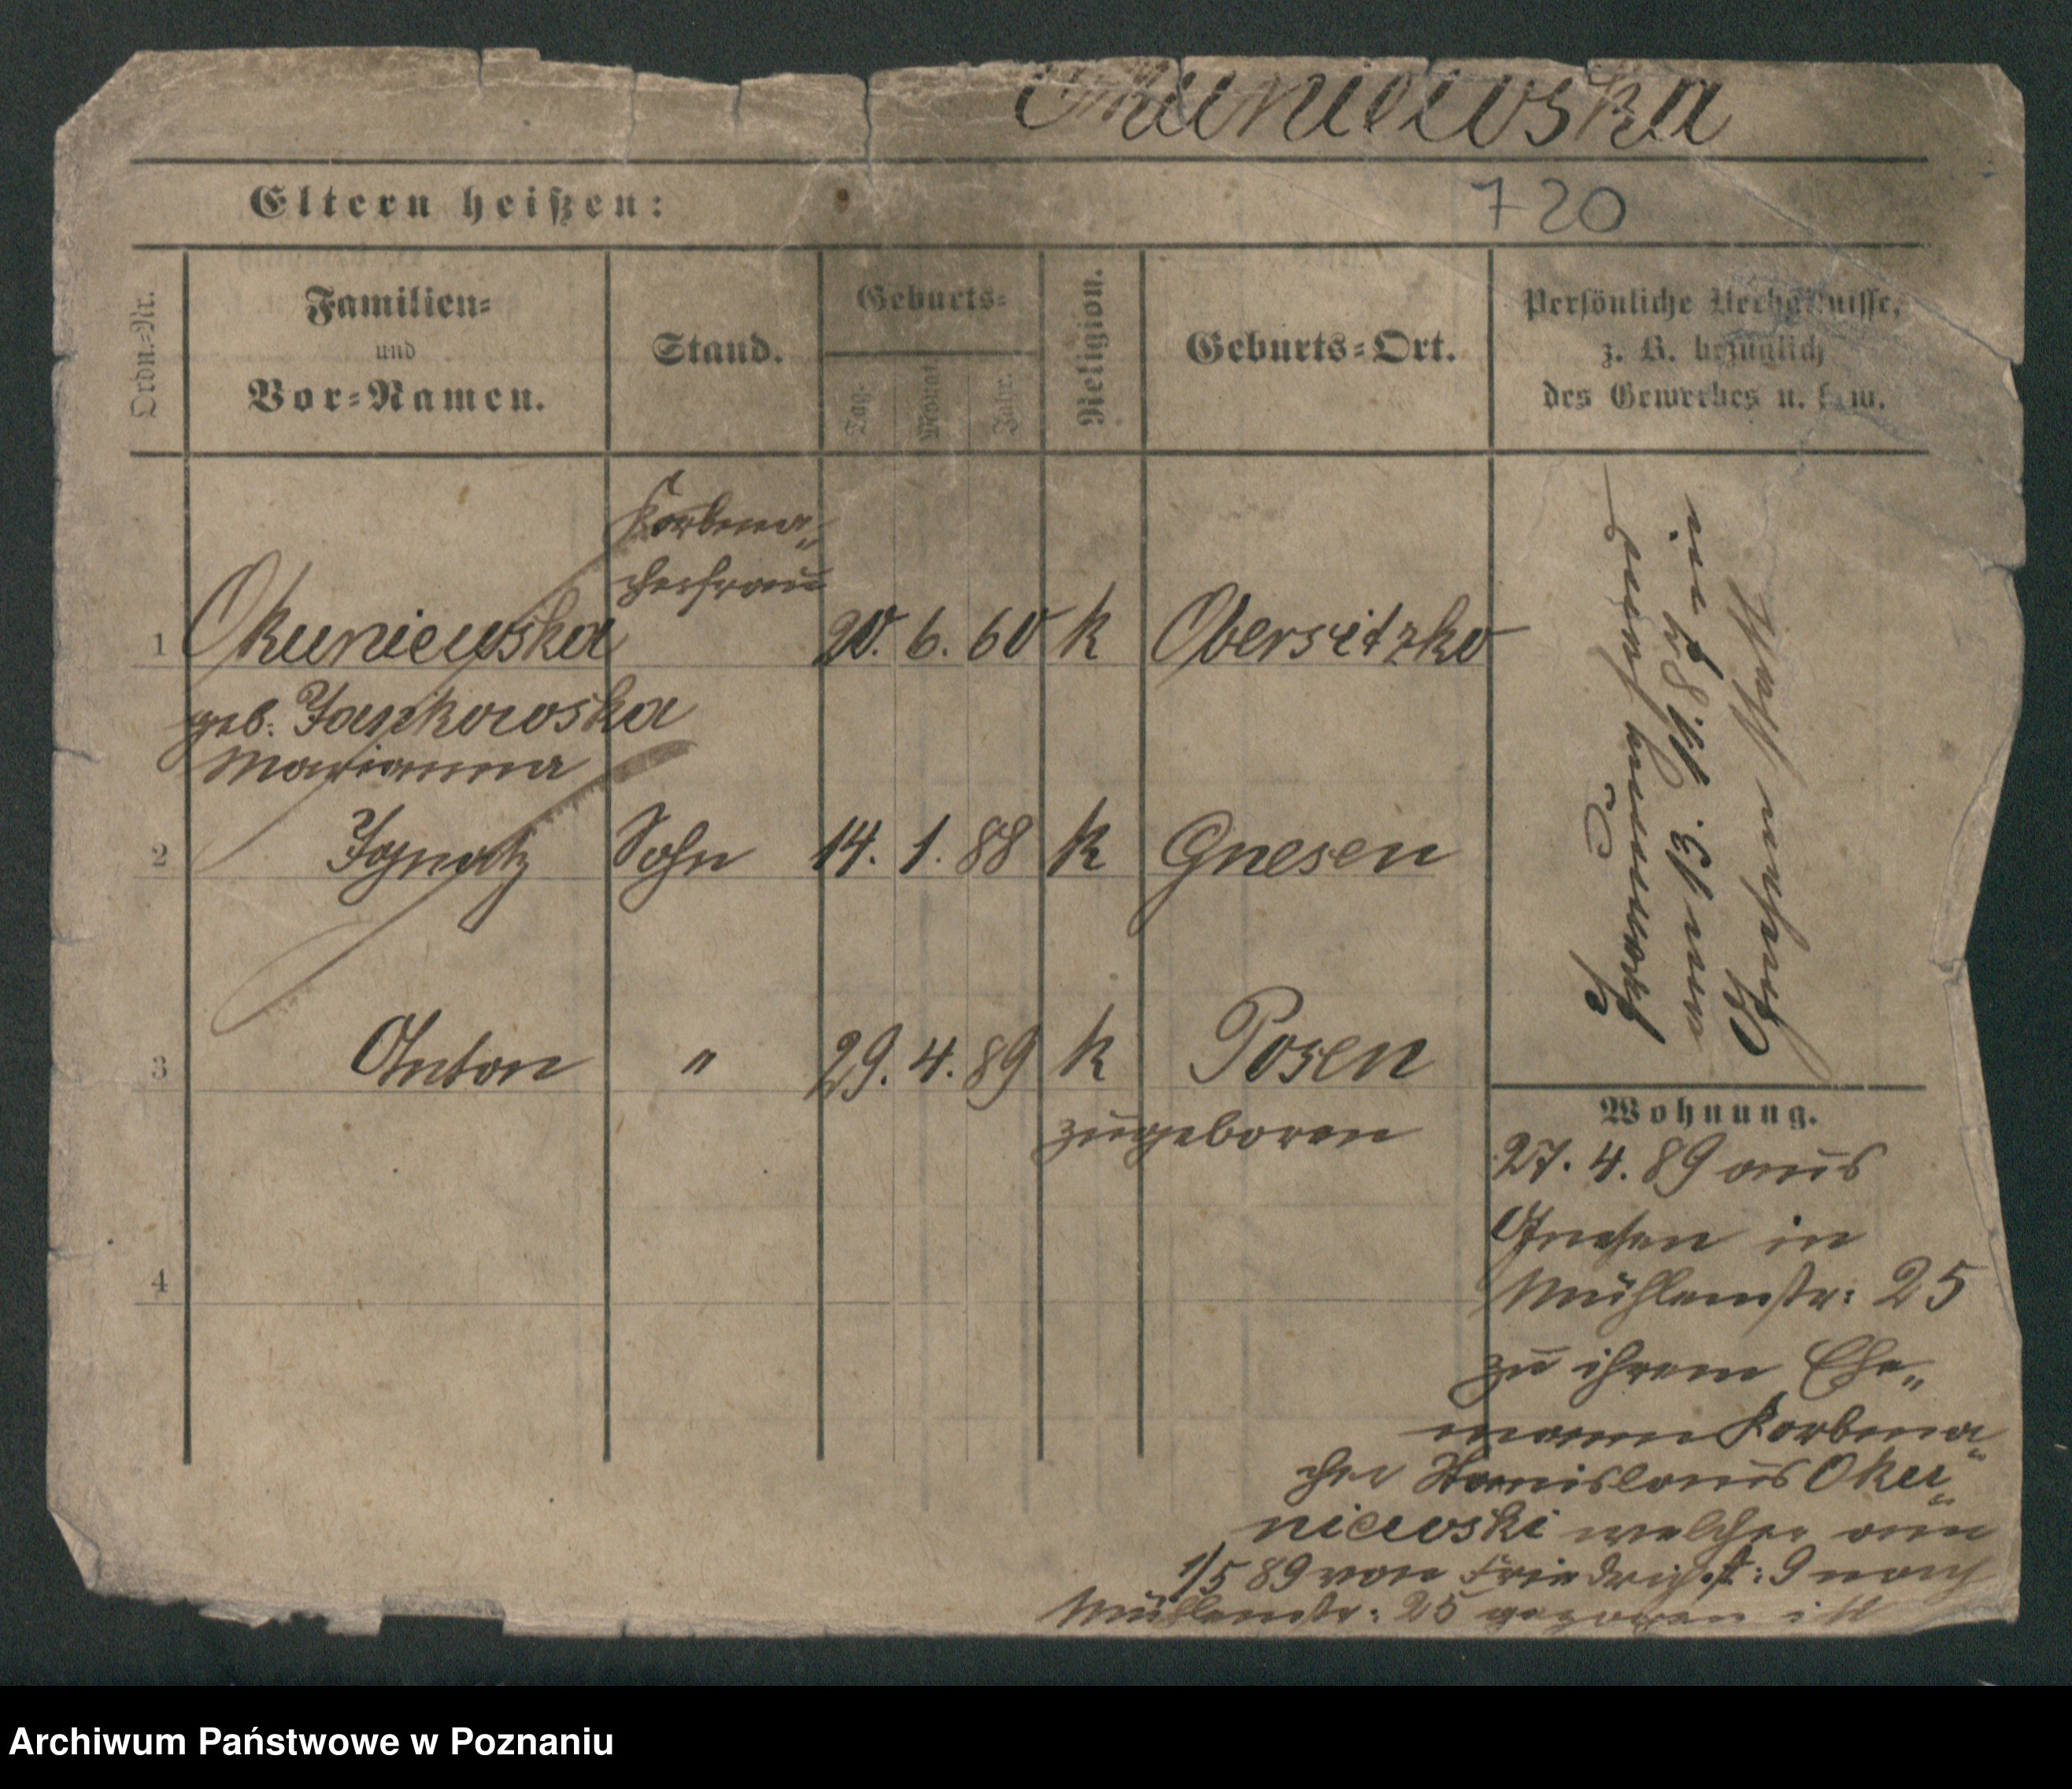 Okuniewska
Eltern heißen:
720
Ordn.-Nr.
Familien-
und
Vor-Namen.
Stand.
Geburts-
Tag.
Monat
Jahr.
Religion.
Geburts-Ort.
Persönliche Verhältnisse,
z. B. bezüglich
des Gewerbes u. s. w.
Korbma-
cherfrau
1 Okuniewska 20. 6. 60 k Obersitzko
geb. Jankowska
Marianna
2 Ignatz Sohn 14. 1. 88 k Gnesen
3 Anton " 29. 4. 89 k Posen
zugeboren
4
13. 11. 87 in
Gnesen
Wohnung.
27. 4. 89 aus
Gnesen in
Mühlenstr: 25
zu ihrem Ehe-
mann Korbma-
cher Stanislaus Oku-
niewski welcher am
1/5 89 von Friedrichst: 9 nach
Mühlenstr: 25 gezogen ist
Archiwum Państwowe w Poznaniu